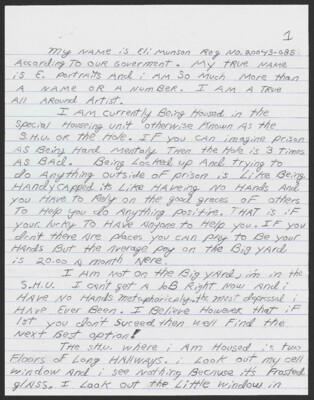 1
My NAME is Eli Munson Reg No. 20043-085
According To OUR Goverment. My TRUE NAME
is E. Portraits And i AM SO Much More than
A NAME OR A NUMBER. I AM A TRUE
All Around Artist.
I AM currently Being Housed in the
Special Housing unit otherwise Known As the
S.H.U. OR the Hole. IF you can imagine prison
AS Being Hard Mentaly Then the Hole is 3 times
AS BAd. Being Locked up And trying to
do Anything outside of prison is Like Being
HANdyCApped its Like HAveing No HANds And
you HAve to Rely on the good graces of others
To Help you do Anything positive. THAT is iF
your Lucky TO HAve Anyone to Help you. IF you
don't there Are places you can pay to Be your
HANds But the Average pay on the Big yard
is 20.00 A month Here
I Am Not on the Big yard, im in the
S.H.U. I can't get A JOB Right Now And i
HAVE NO HANds Metaphoricaly. Its Most depressed i
HAVE Ever Been. I Believe However that if
1st you don't Succeed then well Find the
Next Best option!
The SHU where i Am Housed is two
Floors of Long HAllways. i Look out my cell
window And i see Nothing Because its Frosted
glass. I Look out the Little window in